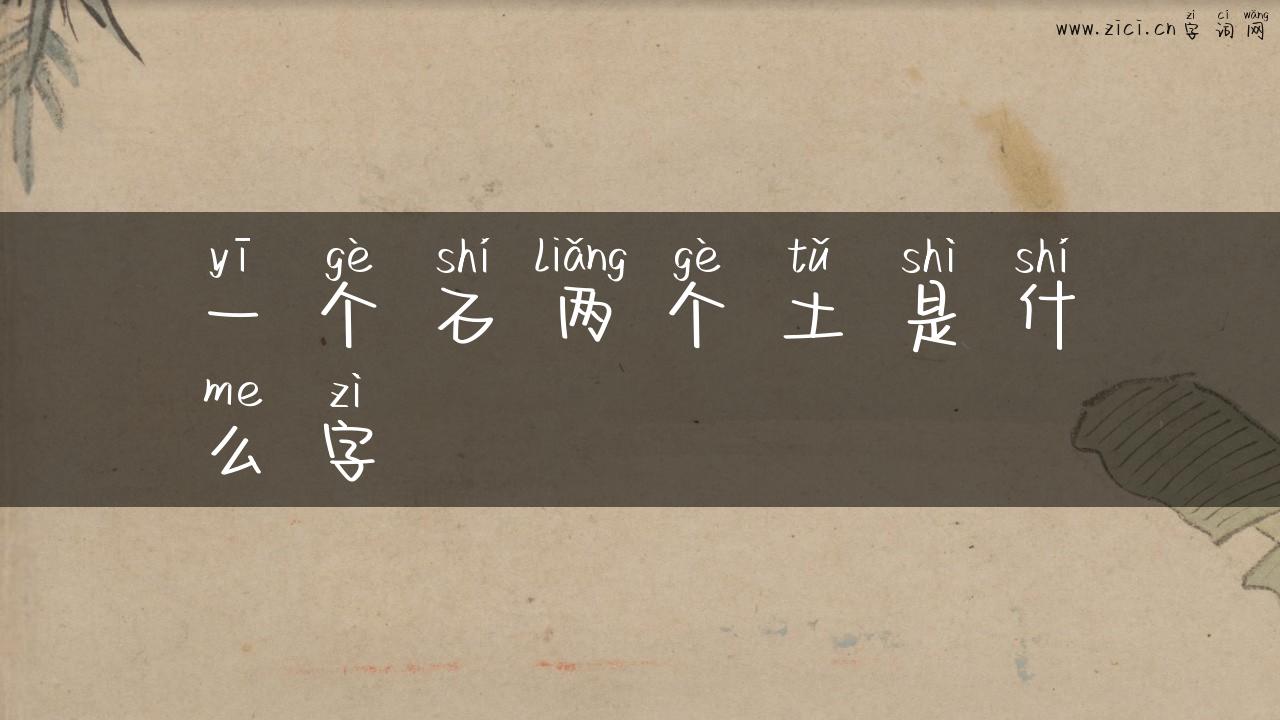 zì cí wǎng
www.zici.cn 字 词 网
yī gè shí liǎng gè tǔ shì shí
一 个 石 两 个 土 是 什
me zì
么 字